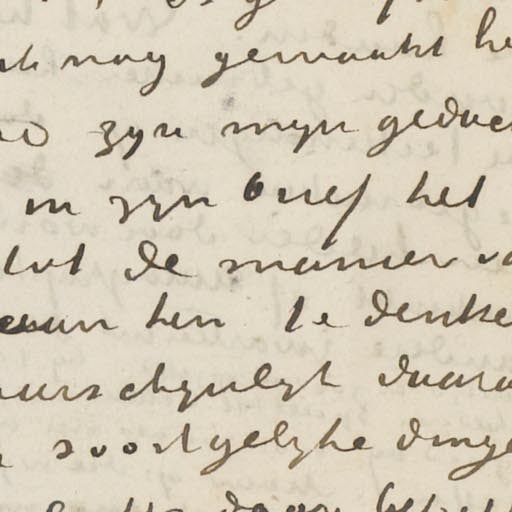 nog gemaakt he
zyn myn gedac
in zyn brief het
dat de manier va
aan hen te denke
aarschynlyk daara
soortgelyke dinge
door